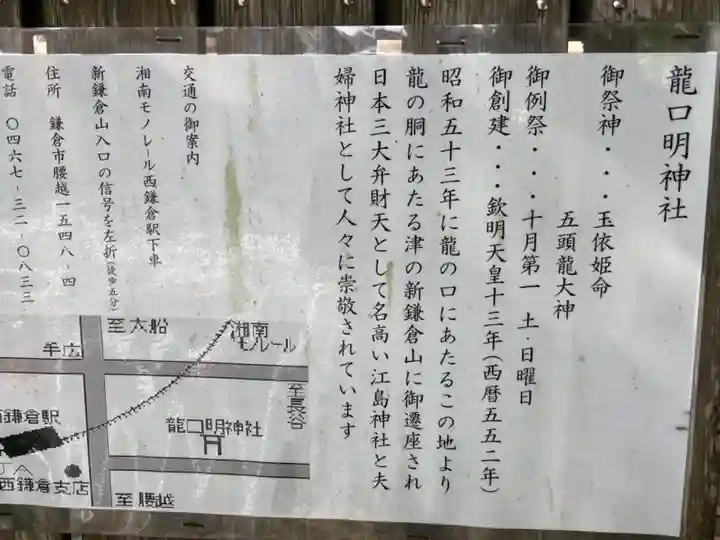 龍口明神社
御祭神・・・玉依姫命
五頭龍大神
御例祭・・・十月第一 土・日曜日
御創建・・・欽明天皇十三年(西暦五五二年)
昭和五十三年に龍の口にあたるこの地より
龍の胴にあたる津の新鎌倉山に御遷座され
日本三大弁財天として名高い江島神社と夫
婦神社として人々に崇敬されています
交通の御案内
湘南モノレール西鎌倉駅下車
新鎌倉山入口の信号を左折(徒歩五分)
住所 鎌倉市腰越一五四八‐四
電話 〇四六七‐三二‐〇八三三
至大船
湘南
モノレール
手広
至長谷
西鎌倉駅
龍口明神社
JA
西鎌倉支店
至腰越